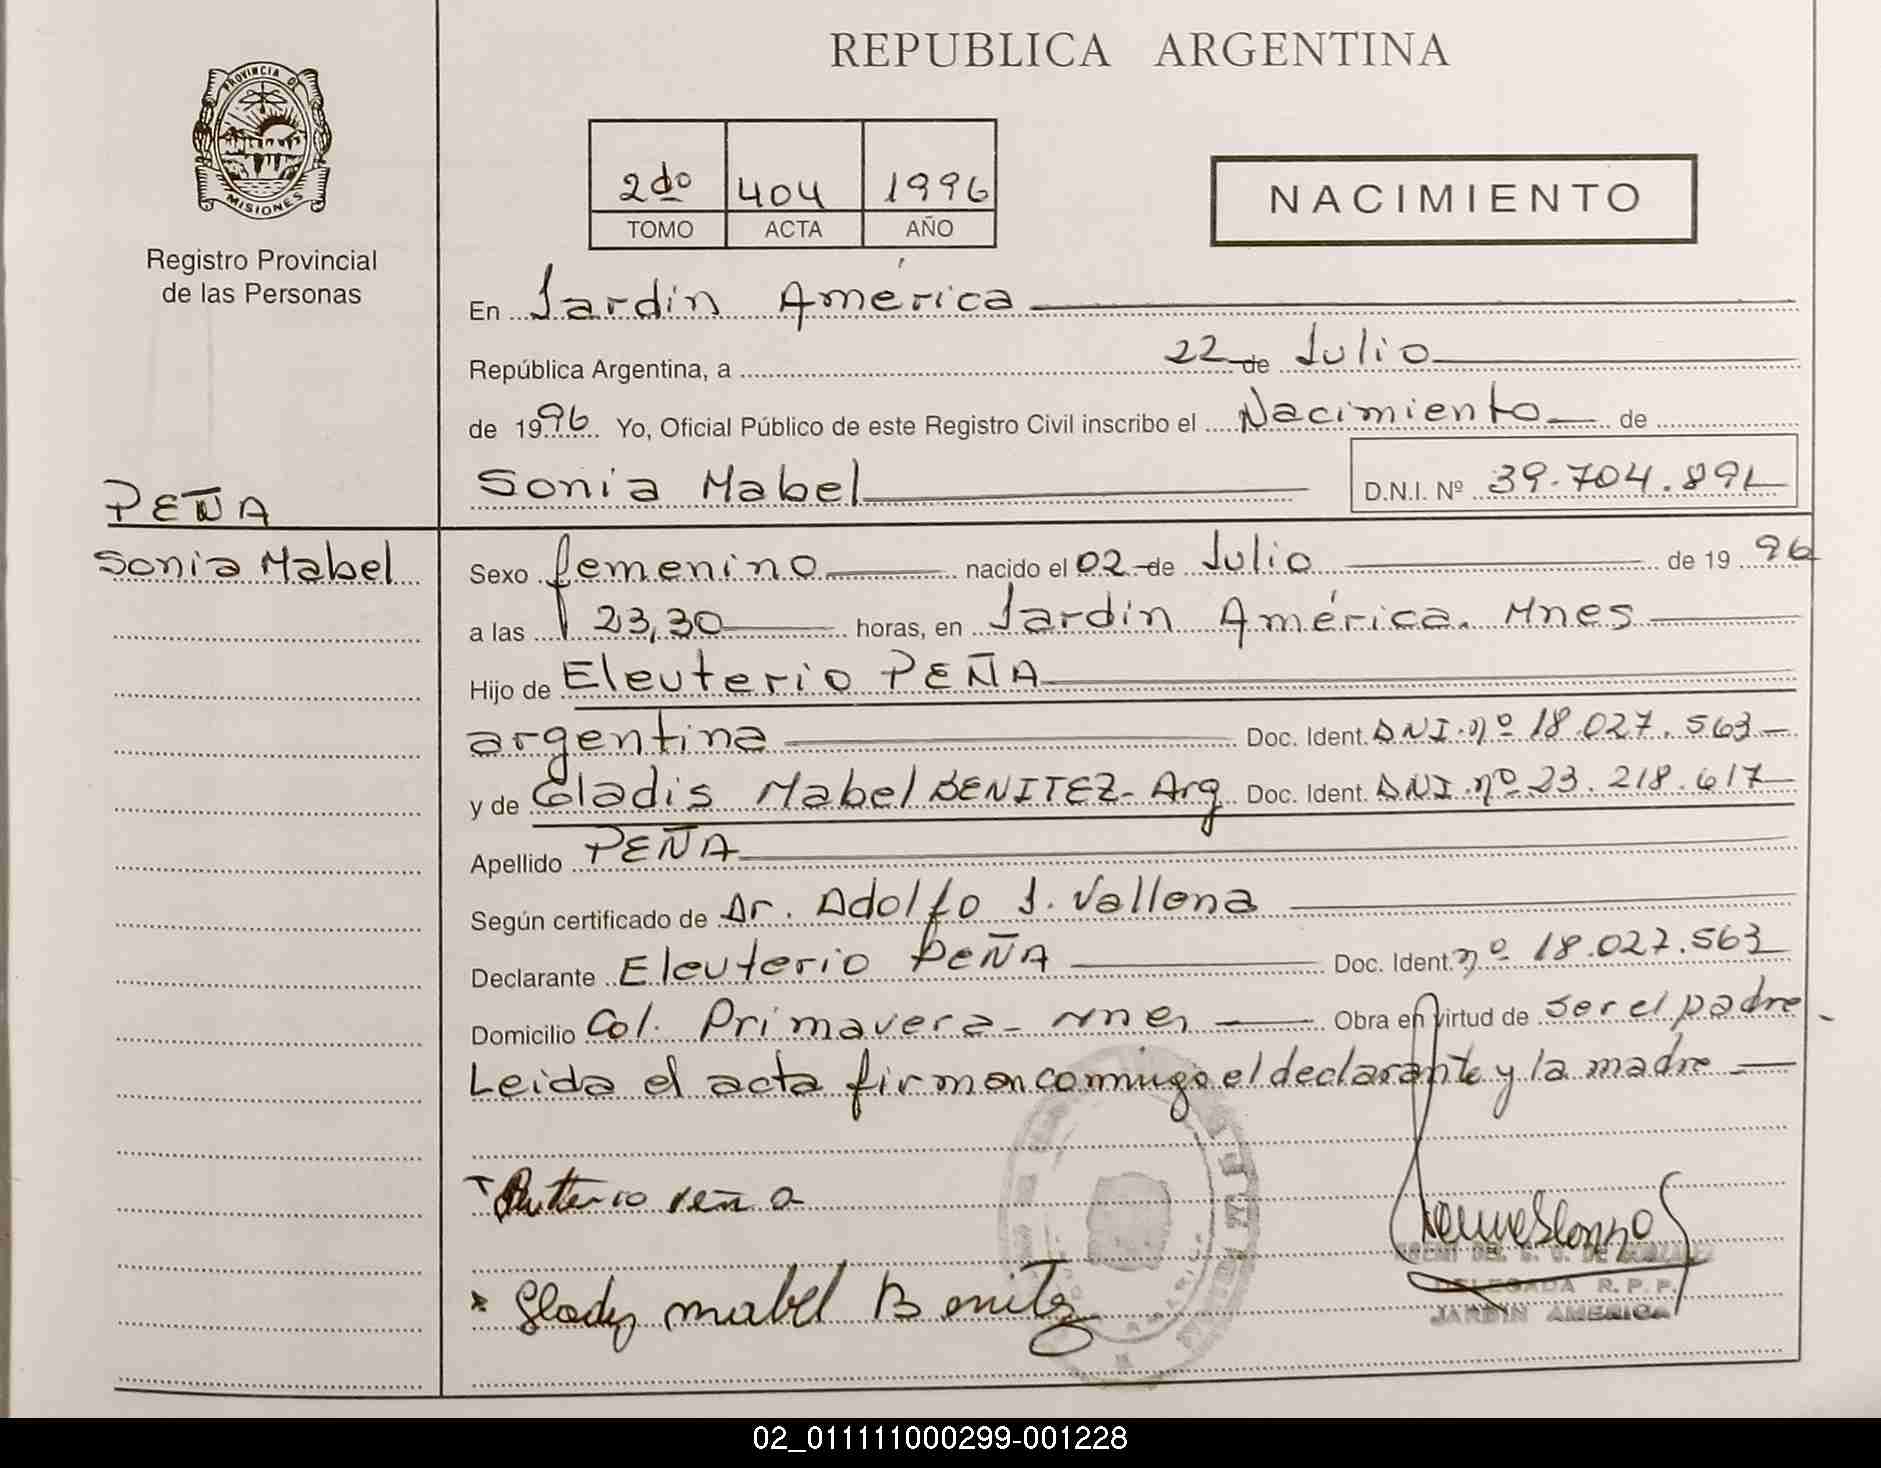 REPUBLICA ARGENTINA
PROVINCIA DE
MISIONES
Registro Provincial
de las Personas
2do 404 1996
TOMO ACTA AÑO
NACIMIENTO
En Jardín América
República Argentina, a 22 de Julio
de 1996 Yo, Oficial Público de este Registro Civil inscribo el Nacimiento de
Sonia Mabel D.N.I. Nº 39.704.891
PEÑA
Sonia Mabel
Sexo femenino nacido el 02 de Julio de 1996
a las 23,30 horas, en Jardín América. Mnes
Hijo de Eleuterio PEÑA
argentina Doc. Ident. DNI. nº 18.027.563
y de Gladis Mabel BENITEZ - Arg Doc. Ident. DNI. nº 23.218.617
Apellido PEÑA
Según certificado de Dr. Adolfo J. Vallena
Declarante Eleuterio PEÑA Doc. Ident. nº 18.027.563
Domicilio Col. Primavera - Mnes Obra en virtud de ser el padre
Leida el acta firman conmigo el declarante y la madre
Gladys mabel Benitez
DELEGADA R.P.P.
JARDIN AMERICA
02_011111000299-001228